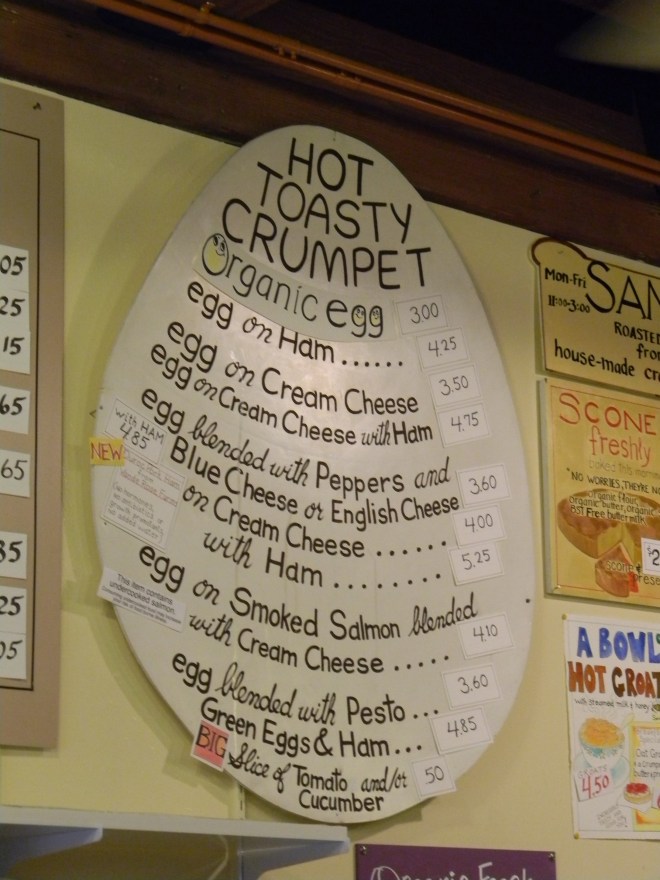 HOT
TOASTY
CRUMPET
Organic egg 3.00
egg on Ham...... 4.25
egg on Cream Cheese 3.50
egg on Cream Cheese with Ham 4.75
egg blended with Peppers and
Blue Cheese or English Cheese 3.60
on Cream Cheese ...... 4.00
with Ham ........ 5.25
egg on Smoked Salmon blended
with Cream Cheese ..... 4.10
egg blended with Pesto ... 3.60
Green Eggs & Ham... 4.85
BIG Slice of Tomato and/or 50
Cucumber
with HAM
4.85
NEW
This item contains
undercooked salmon
05
25
15
65
65
85
25
05
Mon-Fri
11:00-3:00
SAN
ROASTED
from
house-made cr
SCONE
freshly
baked this morning
"NO WORRIES, THEY'RE NO
organic flour,
organic butter, organic
& Fat Free buttermilk
$2
A BOWL
HOT GROAT
with steamed milk & honey
4.50
Organic Fresh